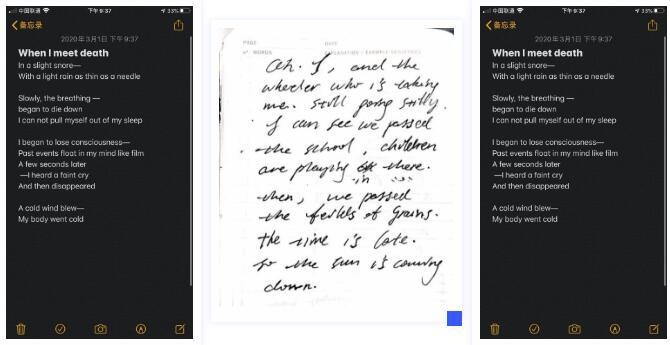 中国联通
下午9:37
33%
备忘录
2020年3月1日 下午9:37
When I meet death
In a slight snore—
With a light rain as thin as a needle
Slowly, the breathing —
began to die down
I can not pull myself out of my sleep
I began to lose consciousness—
Past events float in my mind like film
A few seconds later
—I heard a faint cry
And then disappeared
A cold wind blew—
My body went cold
PAGE
DATE
WORDS
EXPLANATION / EXAMPLE SENTENCES
Oh. I, and the
wheeler who is taking
me. still going stilly.
I can see we passed
the school, children
are playing there.
in
then, we passed
the of grains.
the time is late.
so the sun is coming
down.
中国联通
下午9:37
33%
备忘录
2020年3月1日 下午9:37
When I meet death
In a slight snore—
With a light rain as thin as a needle
Slowly, the breathing —
began to die down
I can not pull myself out of my sleep
I began to lose consciousness—
Past events float in my mind like film
A few seconds later
—I heard a faint cry
And then disappeared
A cold wind blew—
My body went cold